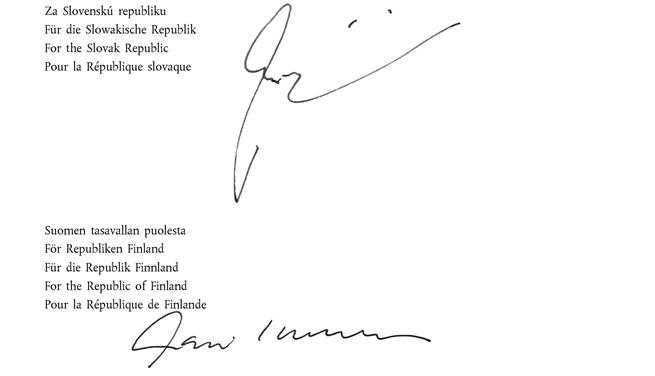 Za Slovenskú republiku
Für die Slowakische Republik
For the Slovak Republic
Pour la République slovaque
Suomen tasavallan puolesta
För Republiken Finland
Für die Republik Finnland
For the Republic of Finland
Pour la République de Finlande